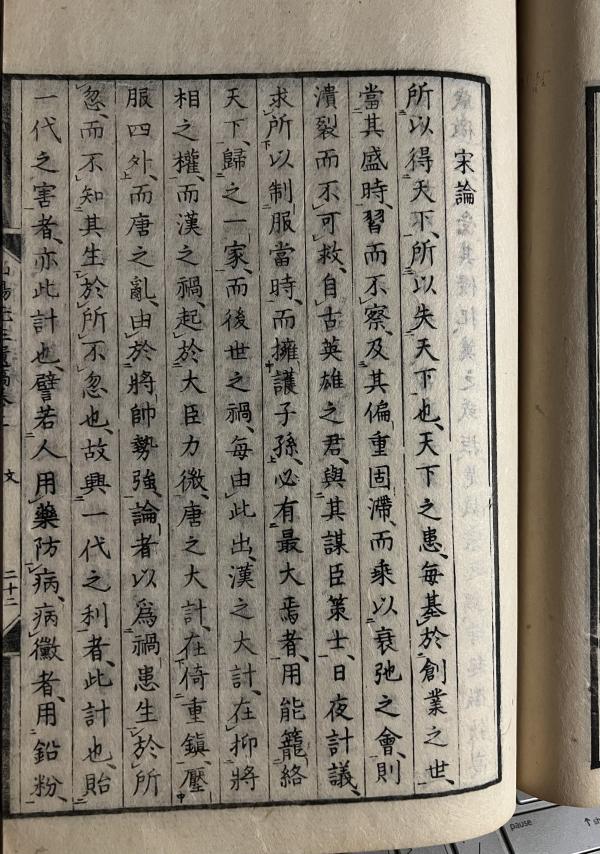 宋論
所以得天下、所以失天下也、天下之患、每基於創業之世、
當其盛時、習而不察、及其偏重固滯、而乘以衰弛之會、則
潰裂而不可救、自古英雄之君、與其謀臣策士、日夜計議、
求所以制服當時、而擁護子孫、必有最大焉者、用能籠絡
天下、歸之一家、而後世之禍、每由此出、漢之大計、在抑將
相之權、而漢之禍、起於大臣力微、唐之大計、在倚重鎮、壓
服四外、而唐之亂、由於將帥勢強、論者以爲禍患生於所
忽、而不知其生於所不忽也、故興一代之利者、此計也、貽
一代之害者、亦此計也、譬若人用藥防病、病黴者、用鉛粉、
文
二十二
pause